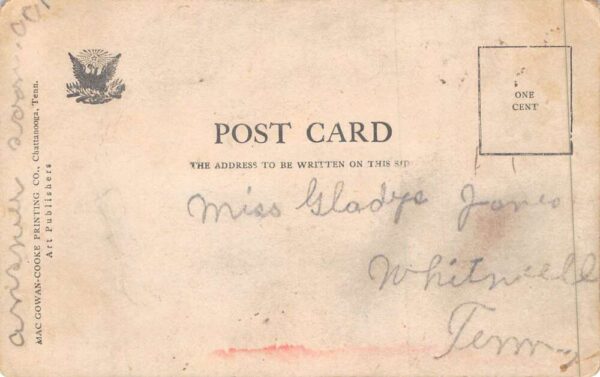 POST CARD
THE ADDRESS TO BE WRITTEN ON THIS SID
ONE
CENT
Miss Gladys Jones
Whitwell
Tenn
MAC GOWAN-COOKE PRINTING CO., Chattanooga, Tenn.
Art Publishers
answer soon.